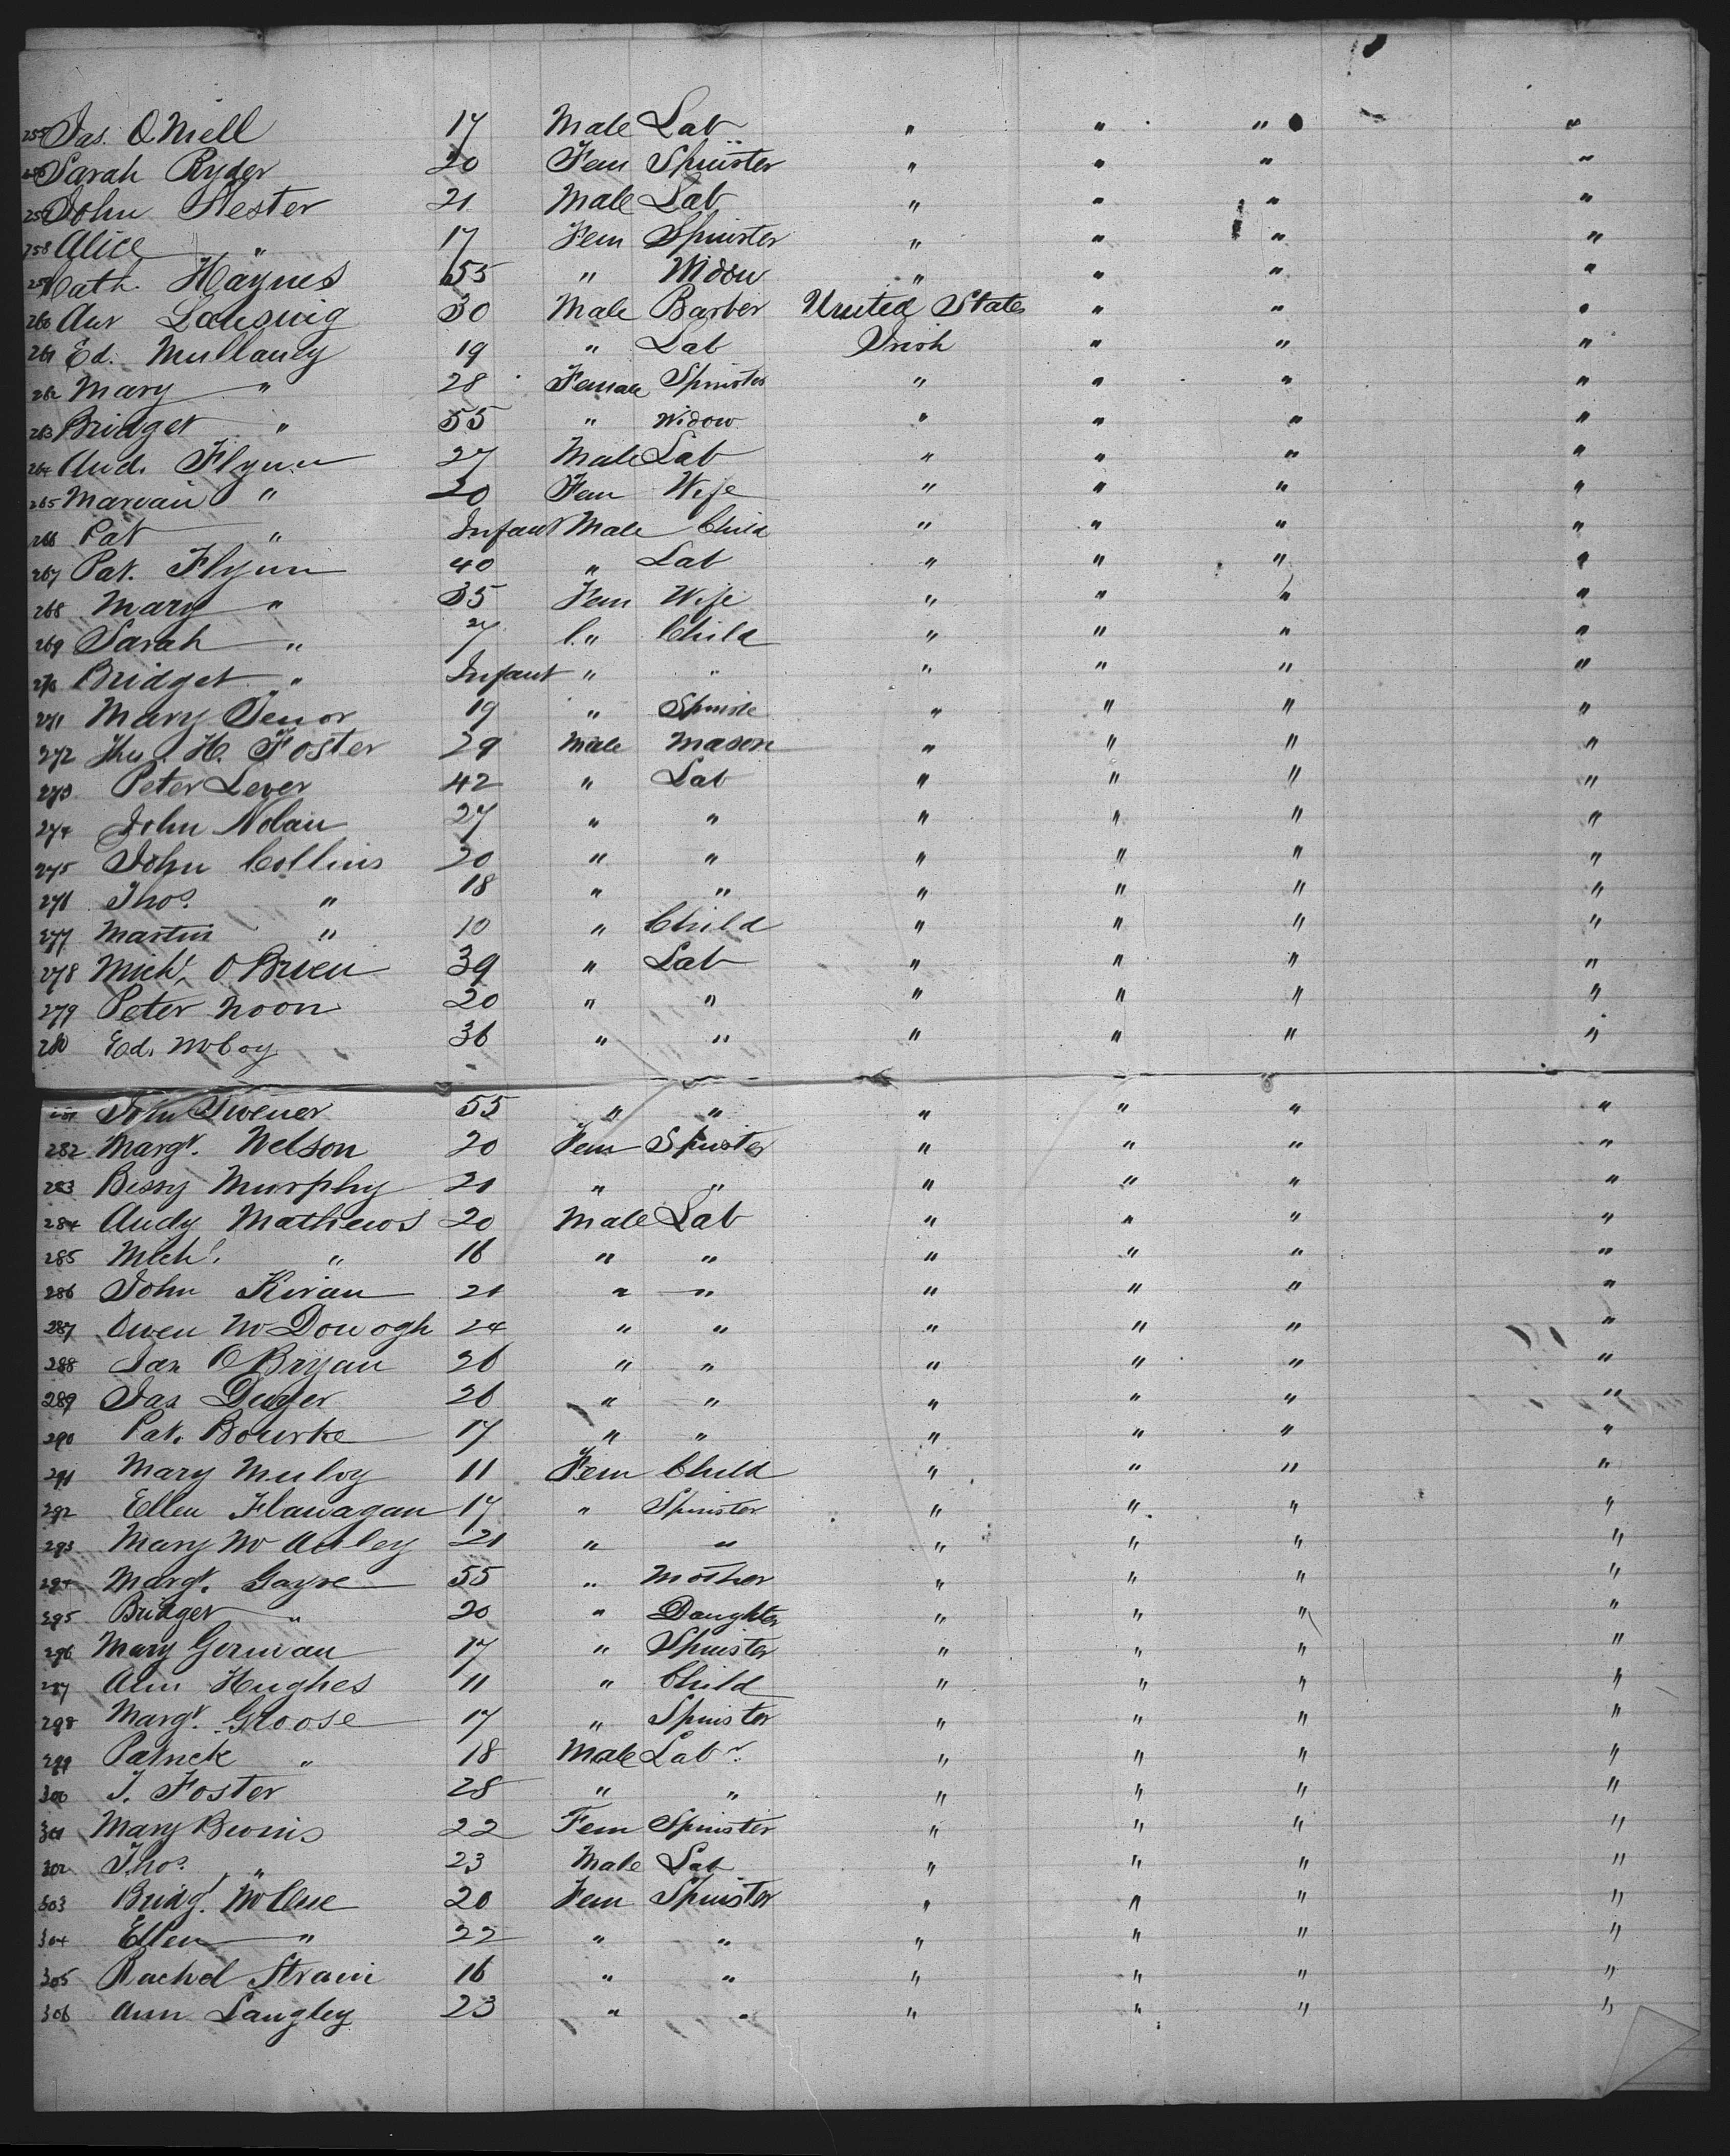 255 Jas. O Niell 17 Male Lab " " " "
256 Sarah Ryder 20 Fem Spinster " " " "
257 John Hester 21 Male Lab " " " "
258 Alice " 17 Fem Spinster " " " "
259 Cath. Haynes 55 " Widow " " " "
260 30 Male Barber United States " " "
261 Ed. Mullaney 19 " Lab Irish " " "
262 Mary " 28 Female Spinster " " " "
263 Bridget " 55 " Widow " " " "
264 And. Flynn 27 Male Lab " " " "
265 " 20 Fem Wife " " " "
266 Pat " Infant Male Child " " " "
267 Pat. Flynn 40 " Lab " " " "
268 Mary " 35 Fem Wife " " " "
269 Sarah " 7 " Child " " " "
270 Bridget " Infant " " " " " "
271 Mary 19 " Spinste " " " "
272 H. Foster 29 Male Mason " " " "
273 Peter Lever 42 " Lab " " " "
274 John Nolan 27 " " " " " "
275 John Collins 20 " " " " " "
276 Thos. " 18 " " " " " "
277 Martin " 10 " Child " " " "
278 Michl. O Brien 39 " Lab " " " "
279 Peter Noon 20 " " " " " "
280 Ed. McCoy 36 " " " " " "
281 John 55 " " " " " "
282 Margt. Nelson 20 Fem Spinster " " " "
283 Bessy Murphy 21 " " " " " "
284 Andy Mathews 20 Male Lab " " " "
285 Michl. " 16 " " " " " "
286 John Kivan 21 " " " " " "
287 Owen McDonogh 24 " " " " " "
288 Jas O Bryan 26 " " " " " "
289 Jas Dwyer 26 " " " " " "
290 Pat. Bourke 17 " " " " " "
291 Mary Muloy 11 Fem Child " " " "
292 Ellen Flanagan 17 " Spinster " " " "
293 Mary McAuley 21 " " " " " "
294 Margt. Gayre 55 " Mother " " " "
295 Bridget " 20 " Daughter " " " "
296 Mary German 17 " Spinster " " " "
297 Ann Hughes 11 " Child " " " "
298 Margt. Groose 17 " Spinster " " " "
299 Patrick " 18 Male Labr. " " " "
300 J. Foster 28 " " " " " "
301 Mary 22 Fem Spinster " " " "
302 Thos. " 23 Male Lab " " " "
303 Bridgt. McCue 20 Fem Spinster " " " "
304 Ellen " 22 " " " " " "
305 Rachel Strain 16 " " " " " "
306 Ann Langley 23 " " " " " "